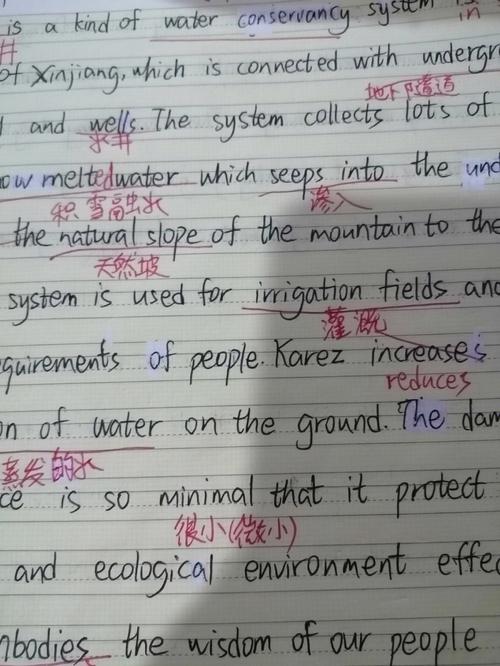 is a kind of water conservancy system in
井
of Xinjiang, which is connected with undergr
地下隧道
and wells. The system collects lots of
水井
ow meltedwater which seeps into the und
积雪融水 渗入
the natural slope of the mountain to the
天然坡
system is used for irrigation fields and
灌溉
quirements of people. Karez increases
reduces
on of water on the ground. The dam
蒸发的水
ce is so minimal that it protect
很小(微小)
and ecological environment effec
mbodies the wisdom of our people